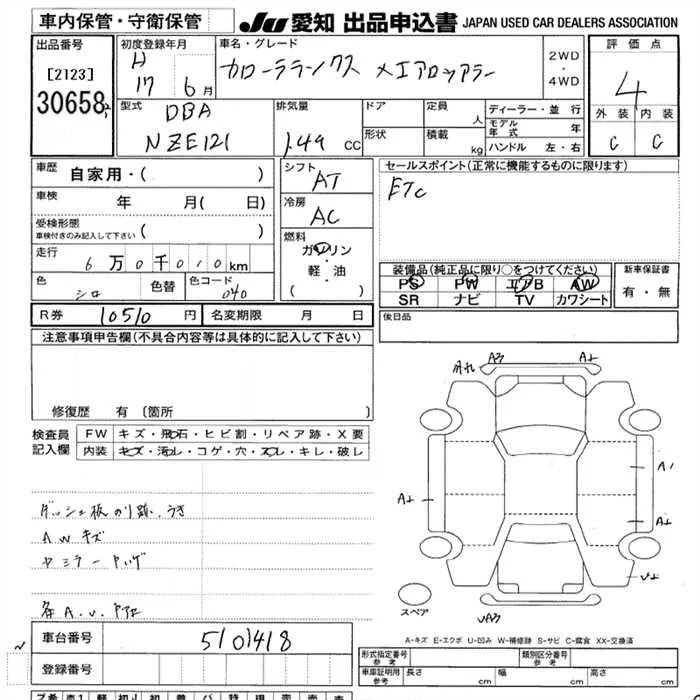 車内保管・守衛保管
JU 愛知 出品申込書 JAPAN USED CAR DEALERS ASSOCIATION
出品番号
[2123]
30658
初度登録年月
H
17 6月
車名・グレード
カローラランクス Xエアロツアラー
2WD
・
4WD
評価点
4
外装 内装
C C
型式
DBA
NZE121
排気量
1.49 CC
ドア
形状
定員
人
積載
kg
ディーラー・並行
モデル年式 年
ハンドル 左・右
車歴
自家用・( )
車検
年 月( 日)
受検形態
車検付きのみ記入して下さい
走行
6万0千010km
色
シロ
色替
色コード
040
シフト
AT
冷房
AC
燃料
ガソリン
・
軽・油
( )
セールスポイント(正常に機能するものに限ります)
ETC
装備品(純正品に限り○をつけてください)
PS PW エアB AW
SR ナビ TV カワシート
新車保証書
有・無
後日品
R券 10510円
名変期限 月 日
注意事項申告欄(不具合内容等は具体的に記入して下さい)
修復歴 有 〔箇所
検査員
記入欄
FW キズ・飛石・ヒビ割・リペア跡・X要
内装 キズ・汚れ・コゲ・穴・スレ・キレ・破レ
ダッシュ板のり跡、うき
AWキズ
各A.U.
A3
A1
スペア
UA3
A-キズ E-エクボ U-凹み W-補修跡 S-サビ C-腐食 XX-交換済
車台番号
5101418
登録番号
形式指定番号
参考
類別区分番号
参考
車庫証明用
参考
長さ
幅
高さ